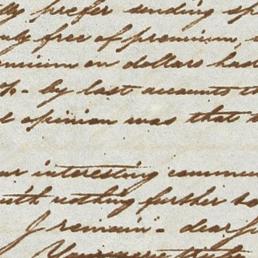 prefer sending sp
free of premium
on dollars has
by last accounts th
opinion was that
interesting commun
nothing further
I remain - dear